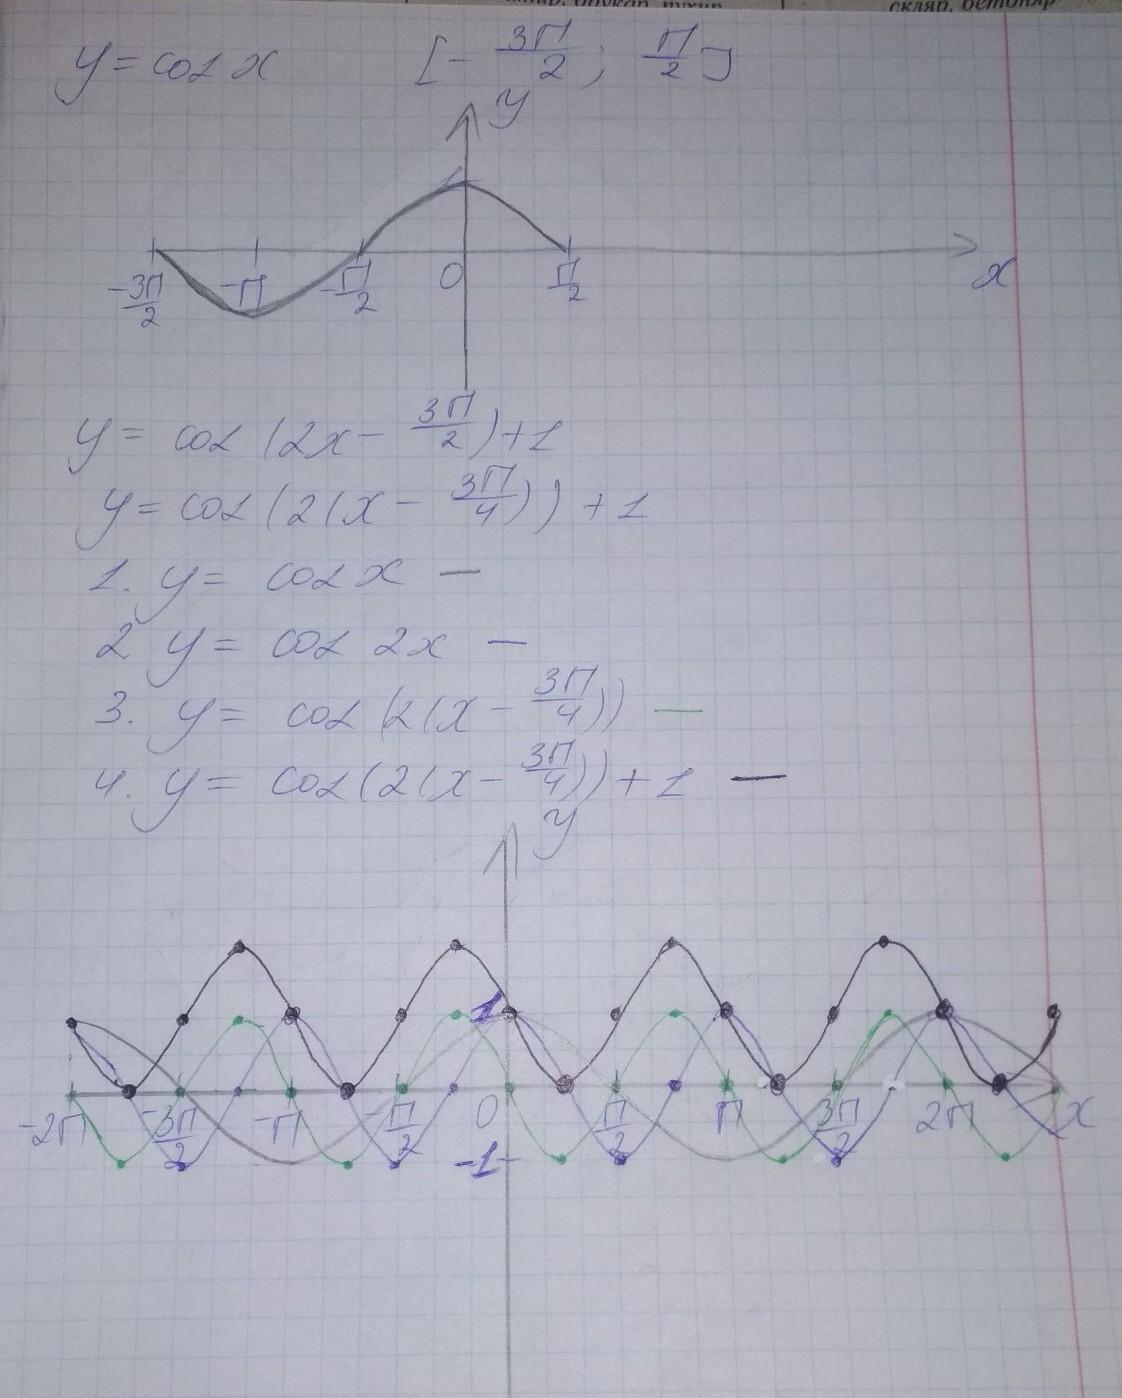 скляр, бетоняр
y = cos x [-3π/2; π/2]
y
1
-3π/2 -π -π/2 0 π/2 x
y = cos (2x - 3π/2) + 1
y = cos (2(x - 3π/4)) + 1
1. y = cos x —
2 y = cos 2x —
3. y = cos (2(x - 3π/4)) —
4. y = cos (2(x - 3π/4)) + 1 —
y
1
-2π -3π/2 -π -π/2 0 π/2 π 3π/2 2π x
-1